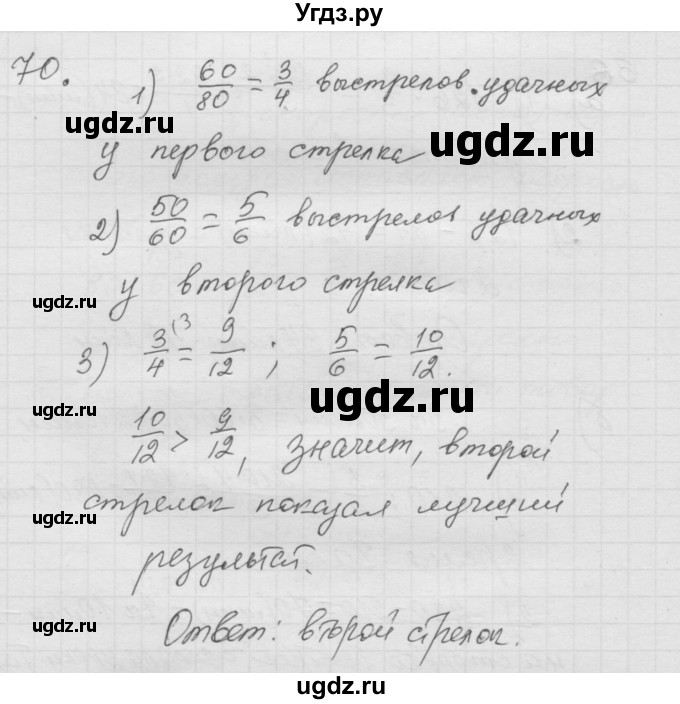 Угдз.ру
70.
1) 60/80 = 3/4 выстрелов удачных
ugdz.ru
ugdz.ru
у первого стрелка
2) 50/60 = 5/6 выстрелов удачных
у второго стрелка
ugdz.ru
ugdz.ru
3) 3/4 (3 = 9/12 ; 5/6 = 10/12.
ugdz.ru
ugdz.ru
10/12 > 9/12, значит, второй
стрелок показал лучший
ugdz.ru
результат.
Ответ: второй стрелок.
ugdz.ru
ugdz.ru